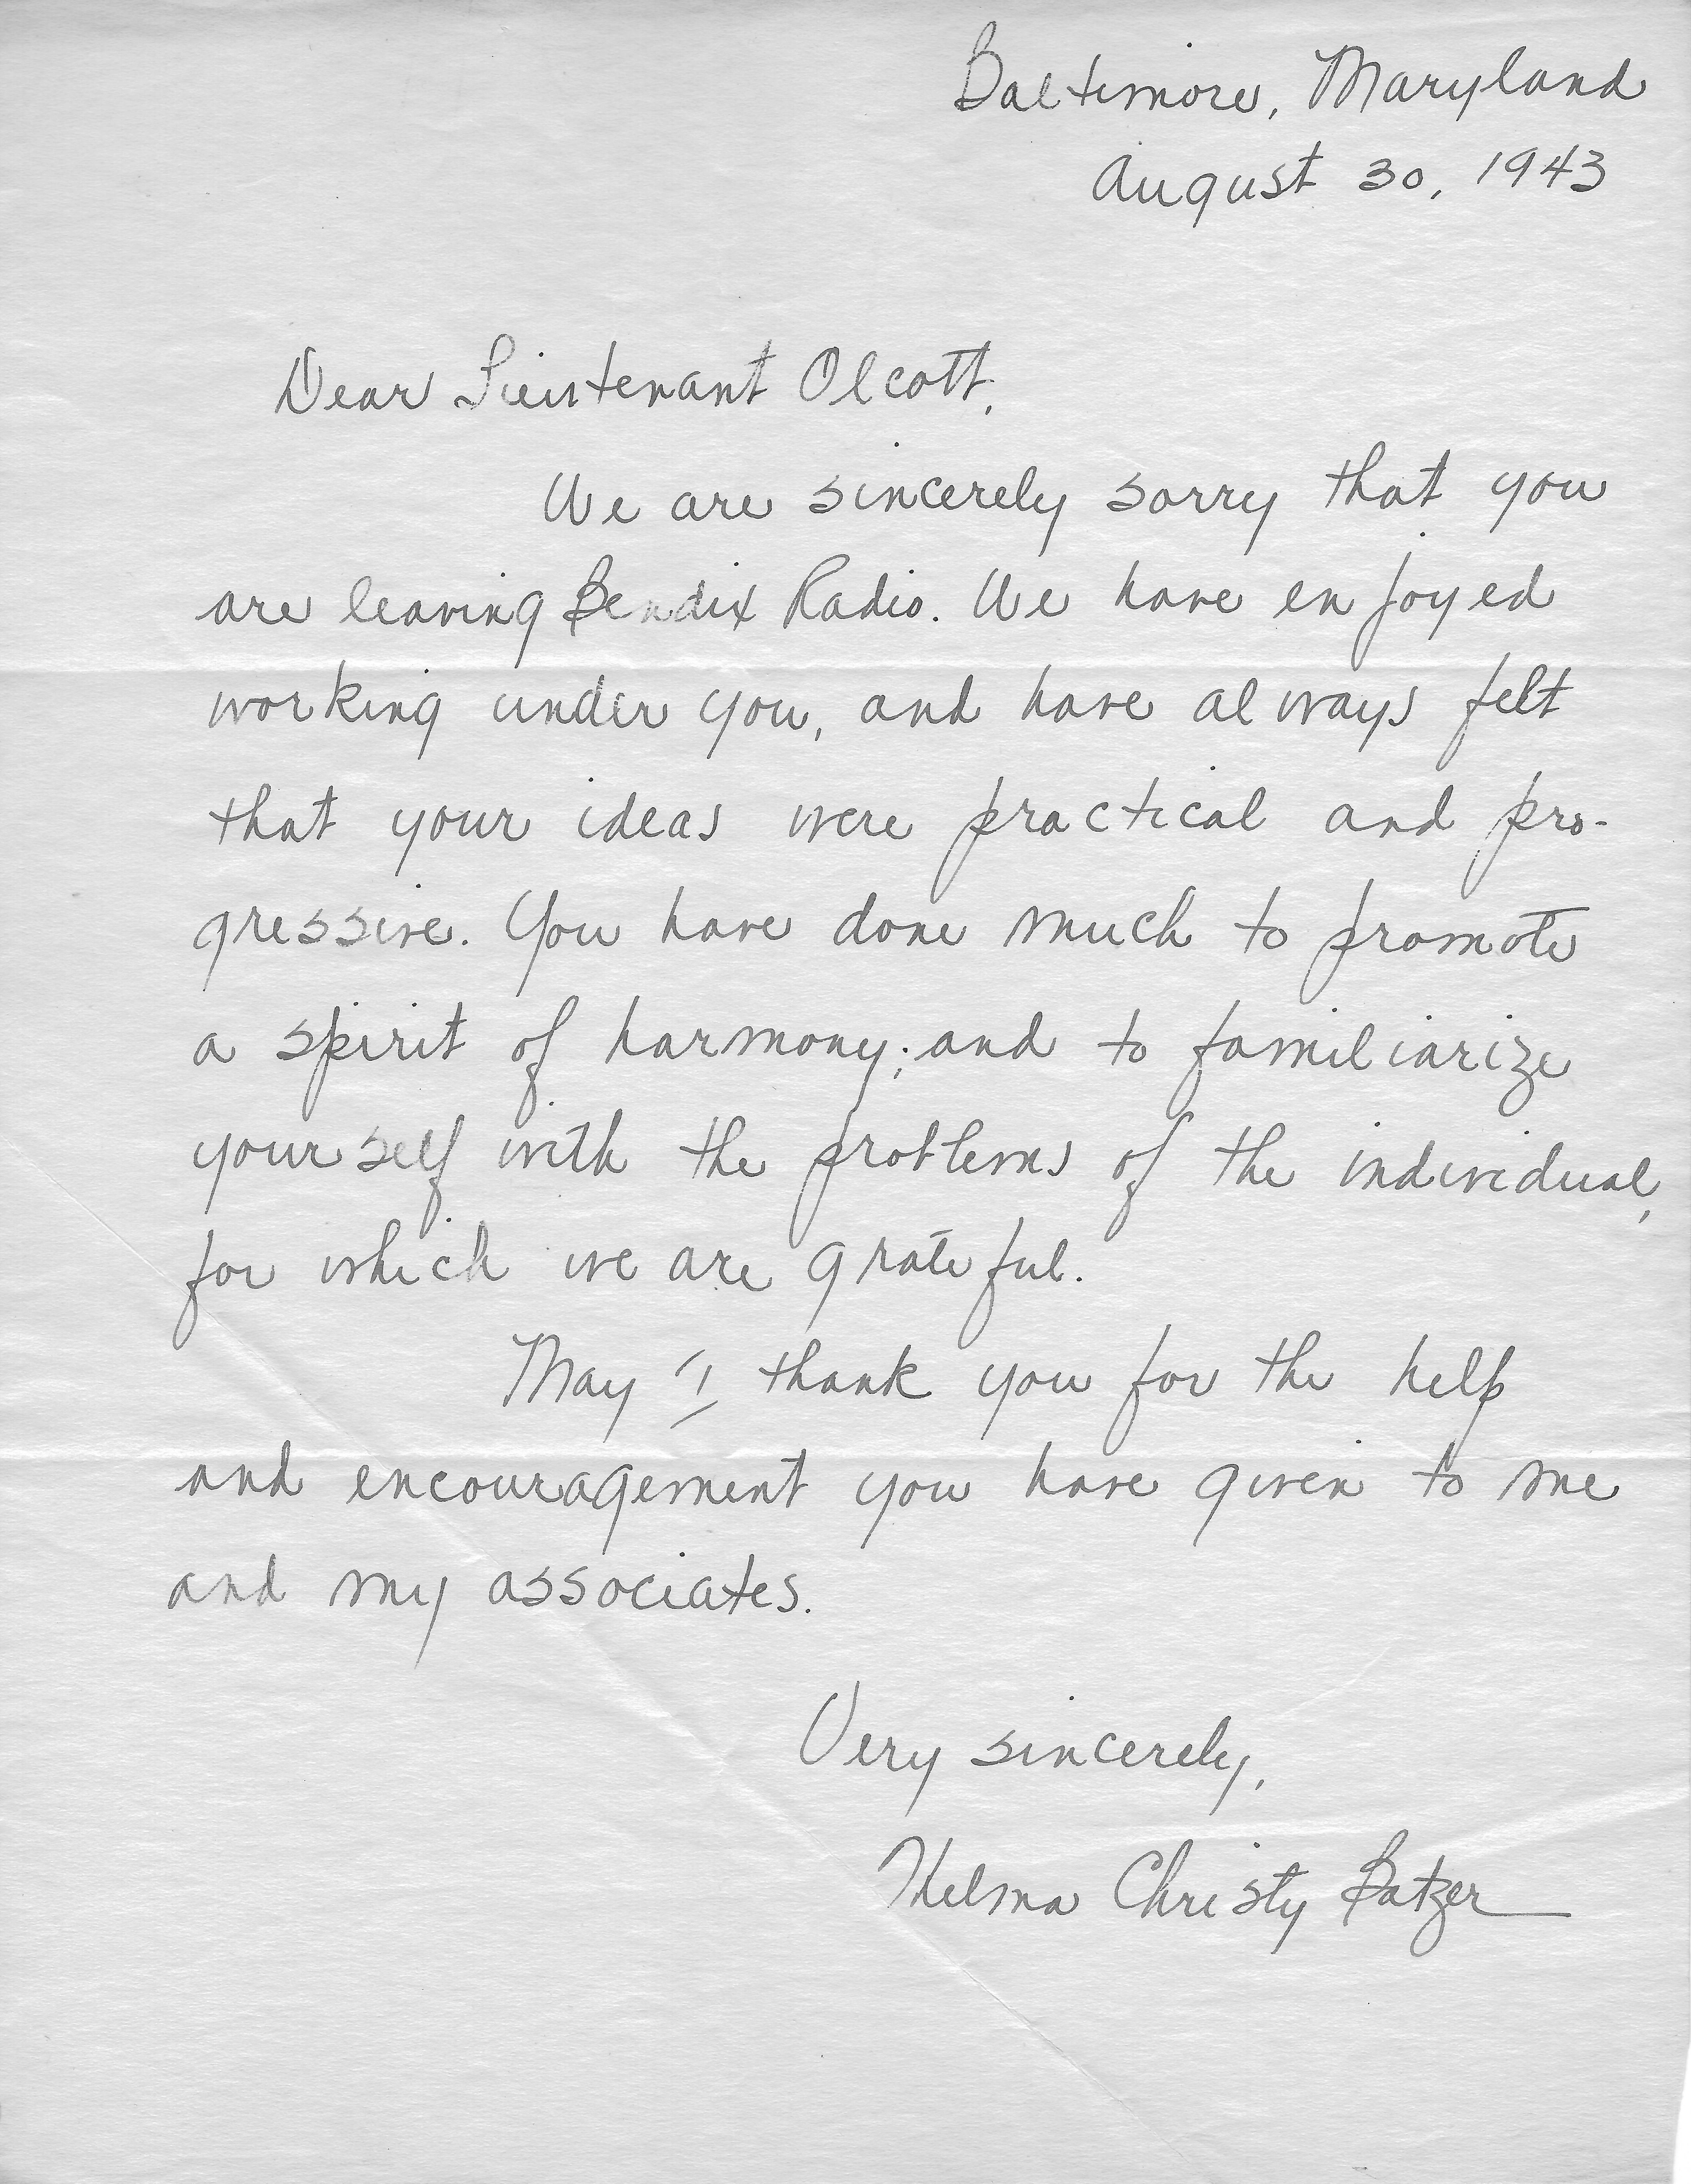 Baltimore, Maryland
August 30, 1943
Dear Lieutenant Olcott,
We are sincerely sorry that you
are leaving Bendix Radio. We have enjoyed
working under you, and have always felt
that your ideas were practical and pro-
gressive. You have done much to promote
a spirit of harmony; and to familiarize
yourself with the problems of the individual,
for which we are grateful.
May I thank you for the help
and encouragement you have given to me
and my associates.
Very sincerely,
Thelma Christy Batzer